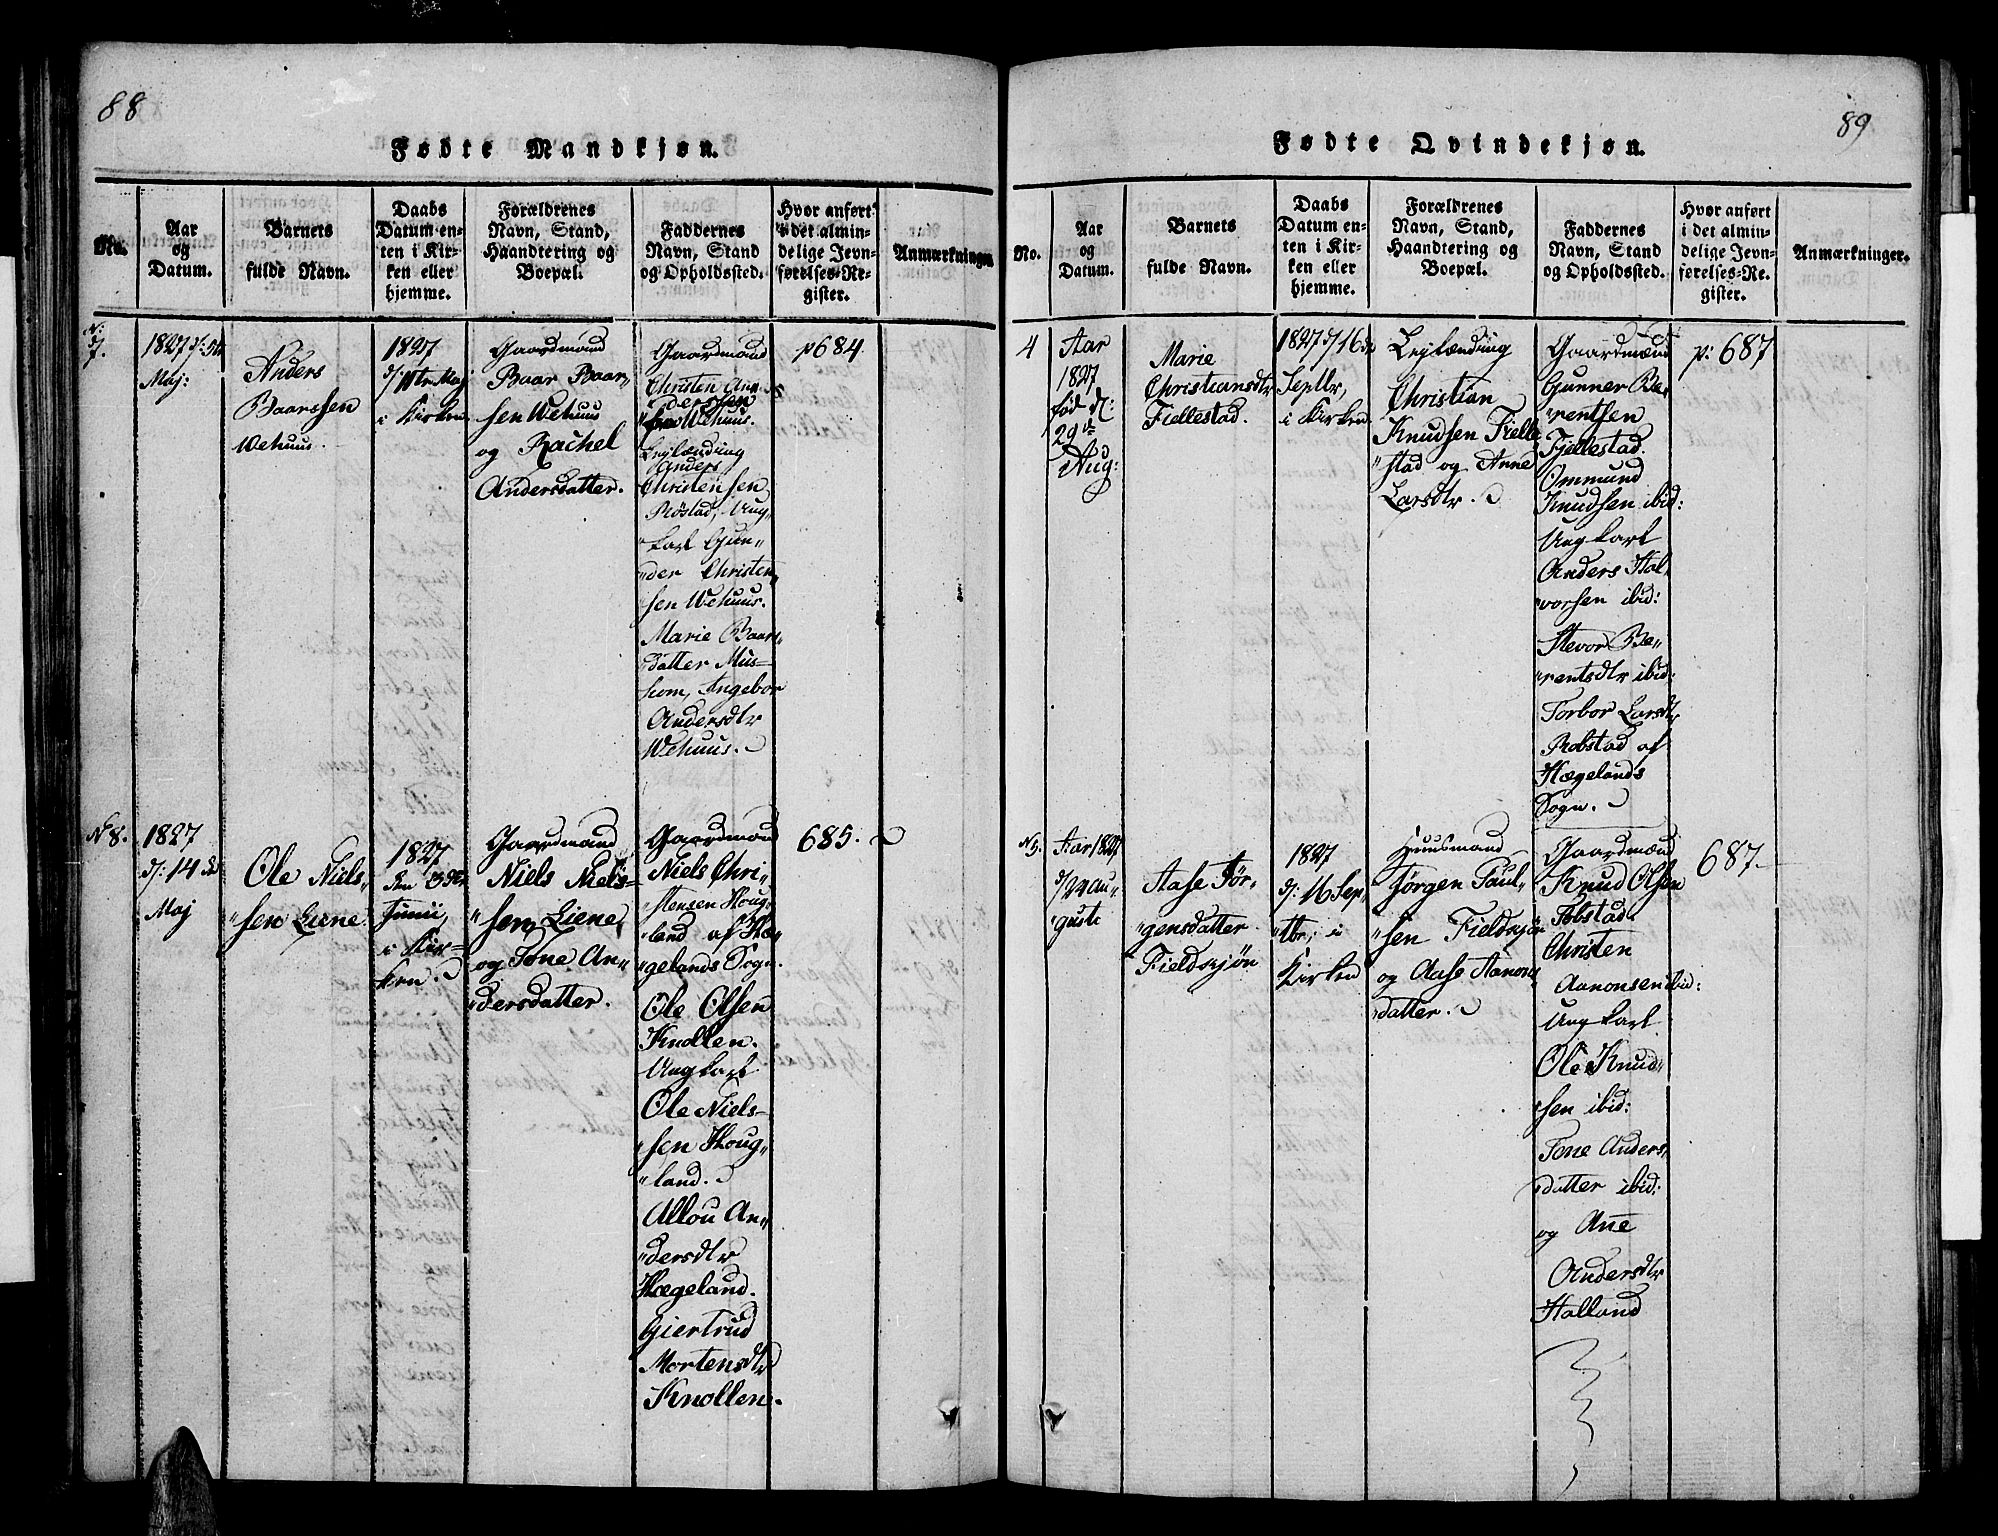 88
Fødte Mandkjøn.
No.
Aar
og
Datum.
Barnets
fulde Navn.
Daabs
Datum en-
ten i Kir-
ken eller
hjemme.
Forældrenes
Navn, Stand,
Haandtering og
Boepæl.
Faddernes
Navn, Stand
og Opholdssted.
Hvor anført
i det almin-
delige Jevn-
førelses-Re-
gister.
Anmærkninger.
N:
7.
1827 d: 5te
Maj:
Anders
Baarssen
Wehuus.
1827
Maj
i Kirken.
Gaardmand
Baar Baar„
sen Wehuus
og Rachel
Andersdatter.
Gaardmand
Christen An„
dersssen
Wehuus.
Lejlænding
Anders
Christensen
Røstad, Ung„
„karl Gun„
„der Christen„
sen Wehuus.
Marie Baars„
„datter Mus-
hom, Angebor
Andersdtr
Wehuus.
p 684.
N 8.
1827
d: 14 de
Maj
Ole Niels„
„sen Liene
1827
den 3die
Junii,
i Kir-
ken.
Gaardmand
Niels Niels-
„sen Liene,
og Tone An„
„dersdatter.
Gaardmand
Niels Chri„
„stensen Houg„
„land af Hæ„
„gelands Sogn.
Ole Olsen
Knollen.
Ungkarl
Ole Niels-
„sen Houg„
„land.
Allou An„
„dersdtr
Hægeland.
Giertrud
Mortensdtr
Knollen.
685.
89
Fødte Qvindekjøn.
No.
Aar
og
Datum.
Barnets
fulde Navn.
Daabs
Datum en-
ten i Kir-
ken eller
hjemme.
Forældrenes
Navn, Stand,
Haandtering og
Boepæl.
Faddernes
Navn, Stand
og Opholdssted.
Hvor anført
i det almin-
delige Jevn-
førelses-Re-
gister.
Anmærkninger.
4
Aar
1827
fød d:
29de
Aug:
Marie
Christiansdtr
Fiellestad.
1827 d/16de
Septbr,
i Kirken
Lejlænding
Christian
Knudsen Fielle
„stad og Anne
Larsdtr.
Gaardmænd
Gunner Be„
„rentsen
Fjellestad.
Ommund
Knudsen ibid:
Ungkarl
Anders Hal„
„vorsen ibid:
Stevor Be„
„rentsdtr ibid:
Torbor Larsdtr
Robstad af
Hægelands
Sogn.
p: 687
N 5.
Aar 1827
Au„
„guste
Aase Jør„
„gensdatter
Fieldssjøn
1827
d: 16 Sep„
„tbr, i
Kirken
Huusmand
Jørgen Paul„
„sen Fieldssjøn
og Aase Aanons„
„datter.
Gaardmænd
Knud Olsen
Tobstad.
Christen
Aanonsen ibid:
Ungkarl
Ole Knud„
„sen ibid:
Tone Anders„
„datter ibid:
og Ane
Andersdtr
Halland
687.